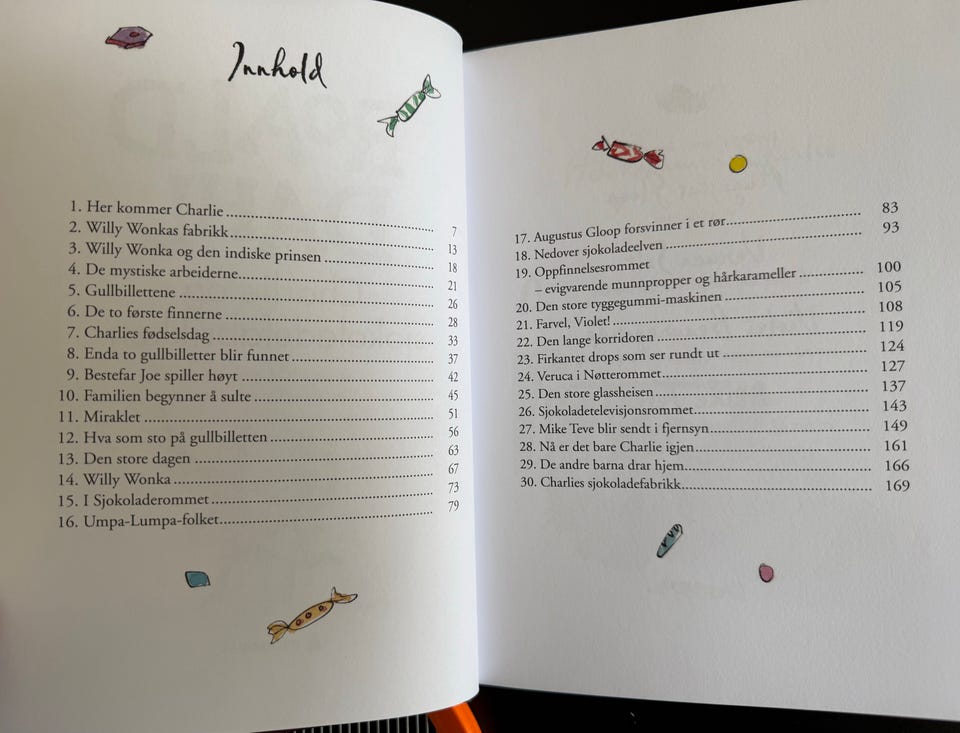 Innhold
1. Her kommer Charlie ........ 7
2. Willy Wonkas fabrikk ........ 13
3. Willy Wonka og den indiske prinsen ........ 18
4. De mystiske arbeiderne ........ 21
5. Gullbillettene ........ 26
6. De to første finnerne ........ 28
7. Charlies fødselsdag ........ 33
8. Enda to gullbilletter blir funnet ........ 37
9. Bestefar Joe spiller høyt ........ 42
10. Familien begynner å sulte ........ 45
11. Miraklet ........ 51
12. Hva som sto på gullbilletten ........ 56
13. Den store dagen ........ 63
14. Willy Wonka ........ 67
15. I Sjokoladerommet ........ 73
16. Umpa-Lumpa-folket ........ 79
17. Augustus Gloop forsvinner i et rør ........ 83
18. Nedover sjokoladeelven ........ 93
19. Oppfinnelsesrommet
– evigvarende munnpropper og hårkarameller ........ 100
20. Den store tyggegummi-maskinen ........ 105
21. Farvel, Violet! ........ 108
22. Den lange korridoren ........ 119
23. Firkantet drops som ser rundt ut ........ 124
24. Veruca i Nøtterommet ........ 127
25. Den store glassheisen ........ 137
26. Sjokoladetelevisjonsrommet ........ 143
27. Mike Teve blir sendt i fjernsyn ........ 149
28. Nå er det bare Charlie igjen ........ 161
29. De andre barna drar hjem ........ 166
30. Charlies sjokoladefabrikk ........ 169